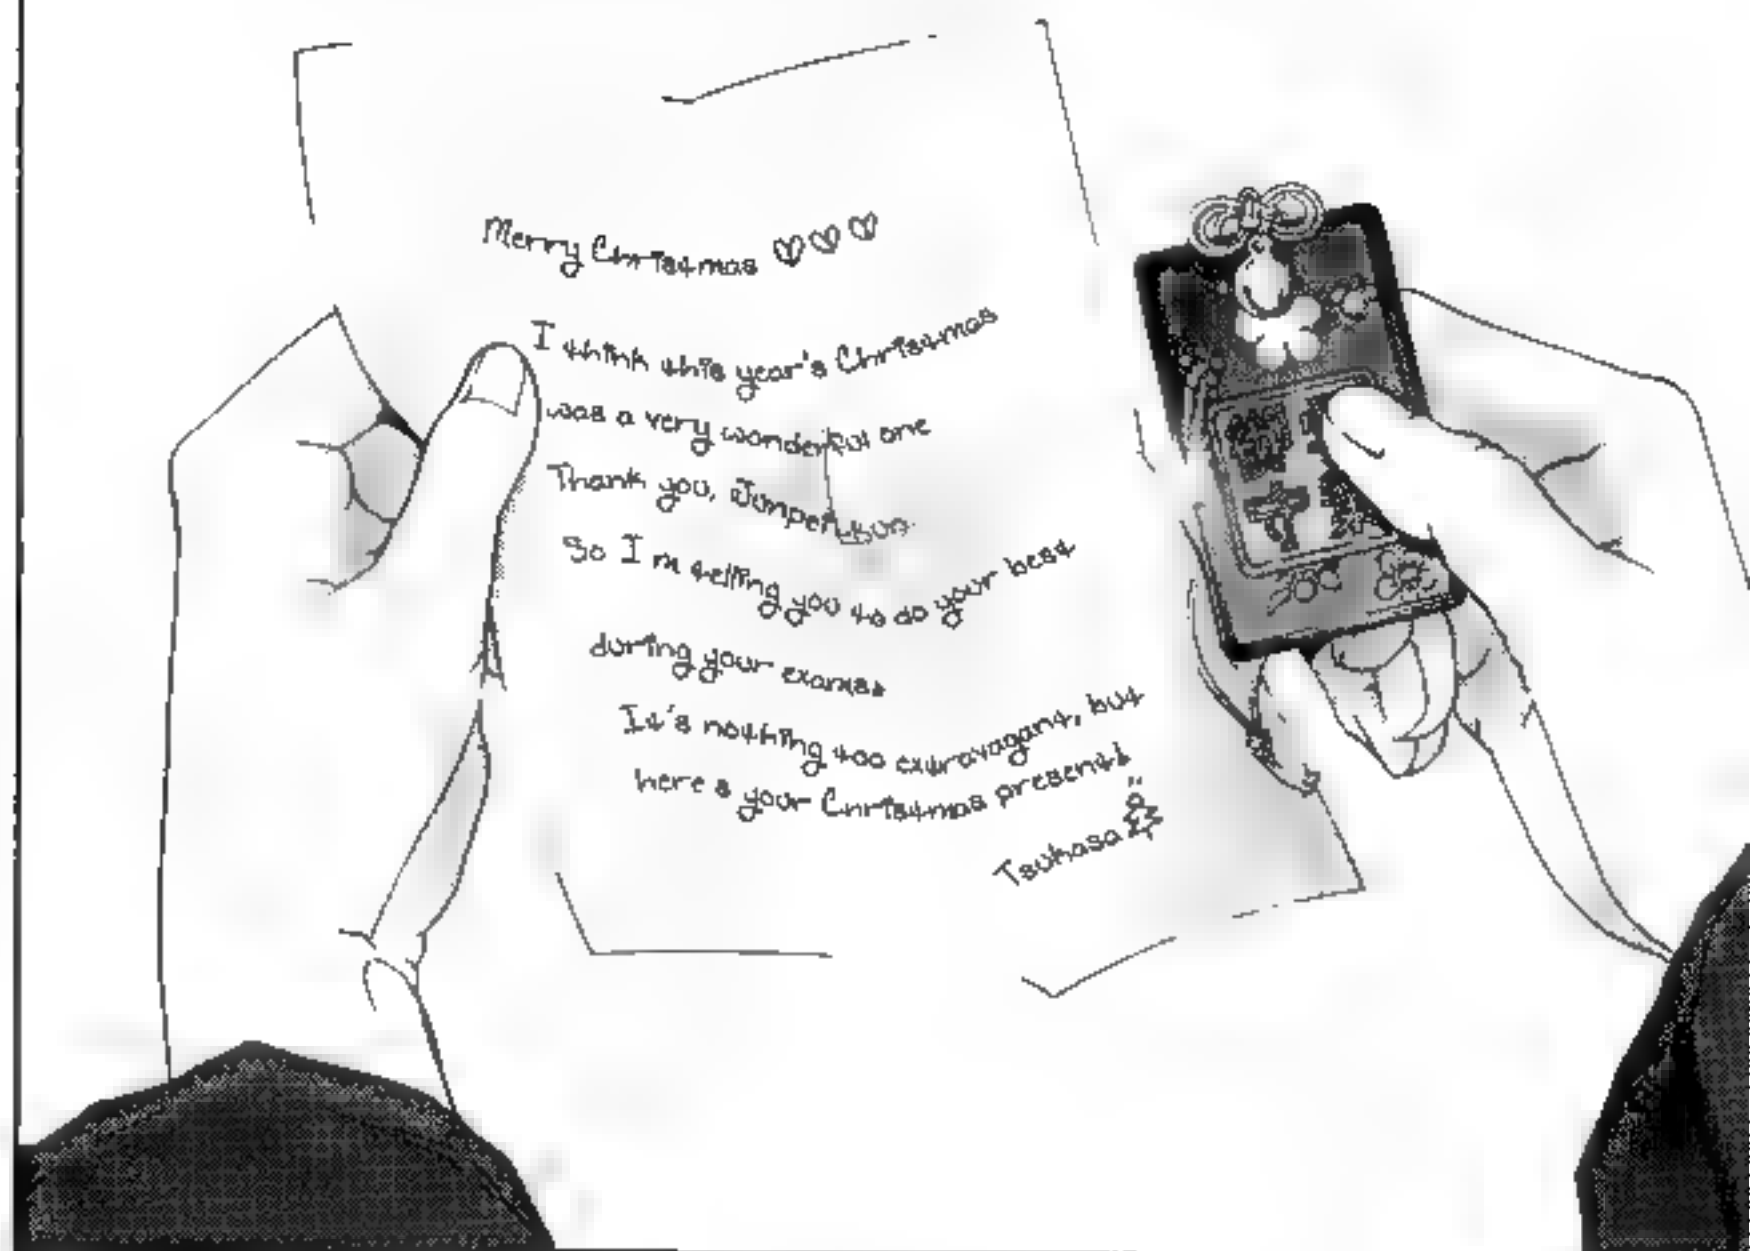 Merry Christmas ♡♡♡
I think this year's Christmas
was a very wonderful one
Thank you, Junpei-kun
So I'm telling you to do your best
during your exams
It's nothing too extravagant, but
here's your Christmas present!
Tsukasa